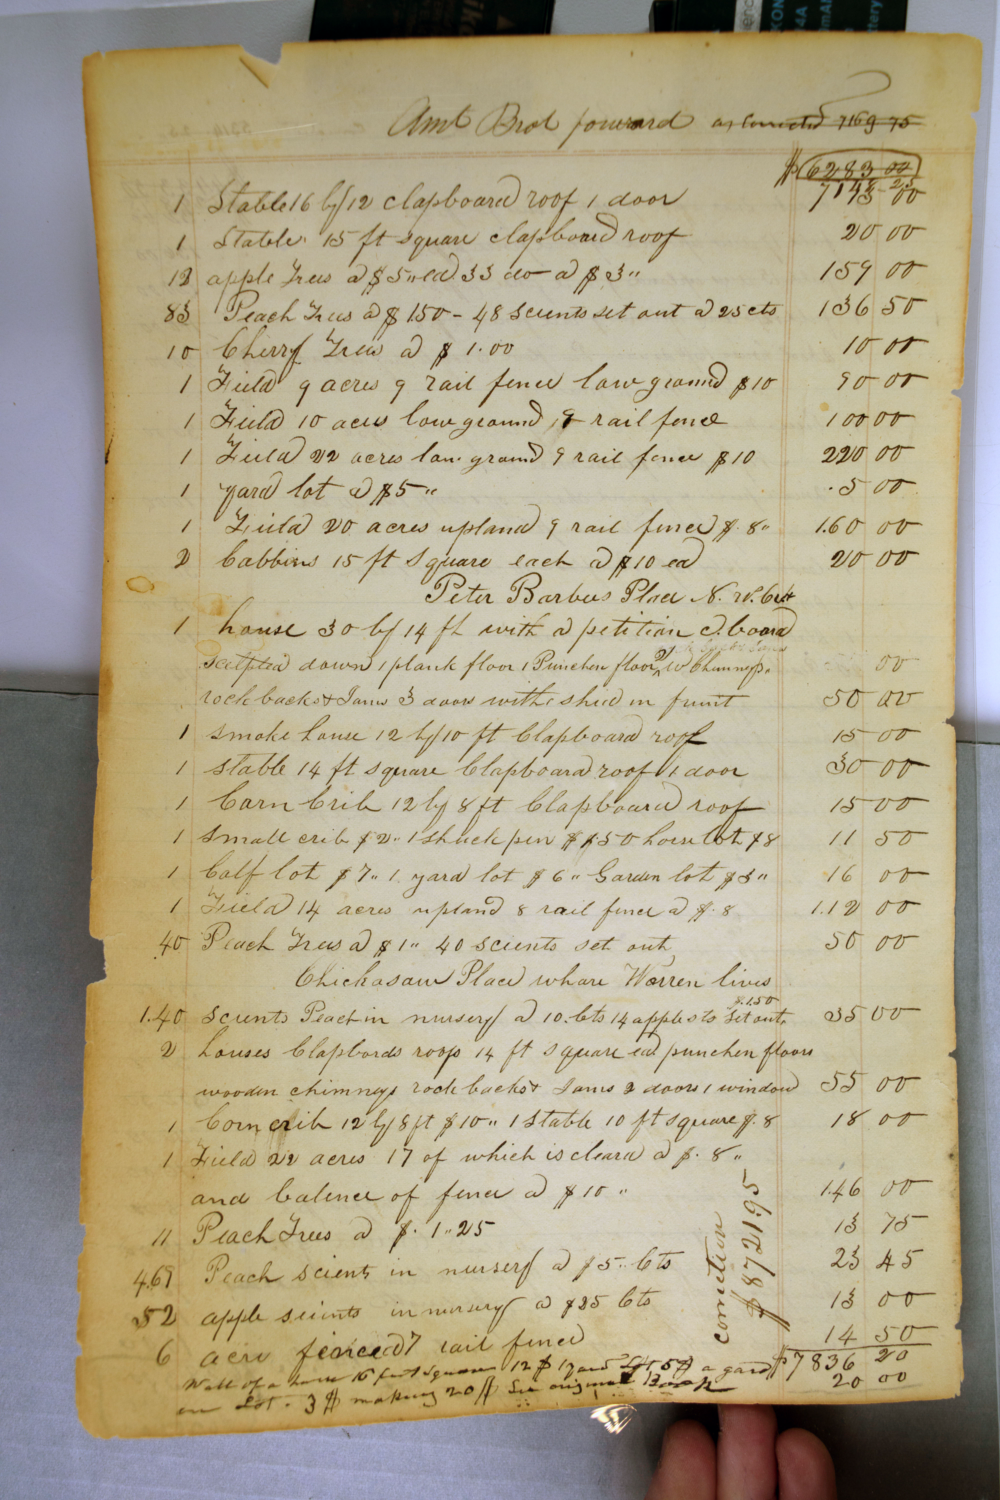 Amt Brot forward as corrected 7169 75
$6283 00
1 Stable 16 by 12 clapboard roof 1 door 7143 00
1 Stable 15 ft square clapboard roof 20 00
12 apple Trees a $5 " ea 33 do a $3 " 159 00
83 Peach Trees a $150 - 48 scients set out a 25 cts 136 50
10 Cherry Trees a $1.00 10 00
1 Field 9 acres 9 rail fence low ground $10 90 00
1 Field 10 acres low ground 9 rail fence 100 00
1 Field 22 acres low ground 9 rail fence $10 220 00
1 yard lot a $5 " 5 00
1 Field 20 acres upland 9 rail fence $.8 " 1.60 00
2 Cabbins 15 ft square each a $10 ea 20 00
Peter Barbees Place N. W.
1 house 30 by 14 ft with a petition c. board
down 1 plank floor 1 Punchen floor 2 W Chimneys 00
rock backs & Jams 3 doors with shed in frunt 50 00
1 smoke house 12 by 10 ft Clapboard roof 15 00
1 stable 14 ft square Clapboard roof 1 door 30 00
1 Corn Crib 12 by 8 ft Clapboard roof 15 00
1 small crib $2 " 1 shuck pen $1 50 horse lot $8 11 50
1 Calf lot $7 " 1 yard lot $6 " Garden lot $3 " 16 00
1 Field 14 acres upland 8 rail fence a $.8 1.12 00
40 Peach Trees a $1 " 40 scients set out 50 00
Chickasaw Place whare Warren lives
$.1.50
1.40 scients Peach in nursery a 10. Cts 14 apple sts set out. 35 00
2 houses Clapbords roofs 14 ft square ea punchen floors
wooden chimneys rock backs & Jams 2 doors 1 window 55 00
1 Corn crib 12 by 8 ft $10 " 1 Stable 10 ft square $.8 18 00
1 Field 22 acres 17 of which is cleard a $.8 "
and balence of fence a $10 " 1.46 00
11 Peach Trees a $.1 " 25 13 75
4.69 Peach scients in nursery a $5 " Cts 23 45
52 apple scients in nursery a $25 Cts 13 00
6 acre fenced 7 rail fence 14 50
correction $8721 95
$7836 20
Wall of a house 16 feet square 12 $ 1 yard Lot 5 $ a gard 20 00
en Lot. 3 $ making 20 $ See original Book